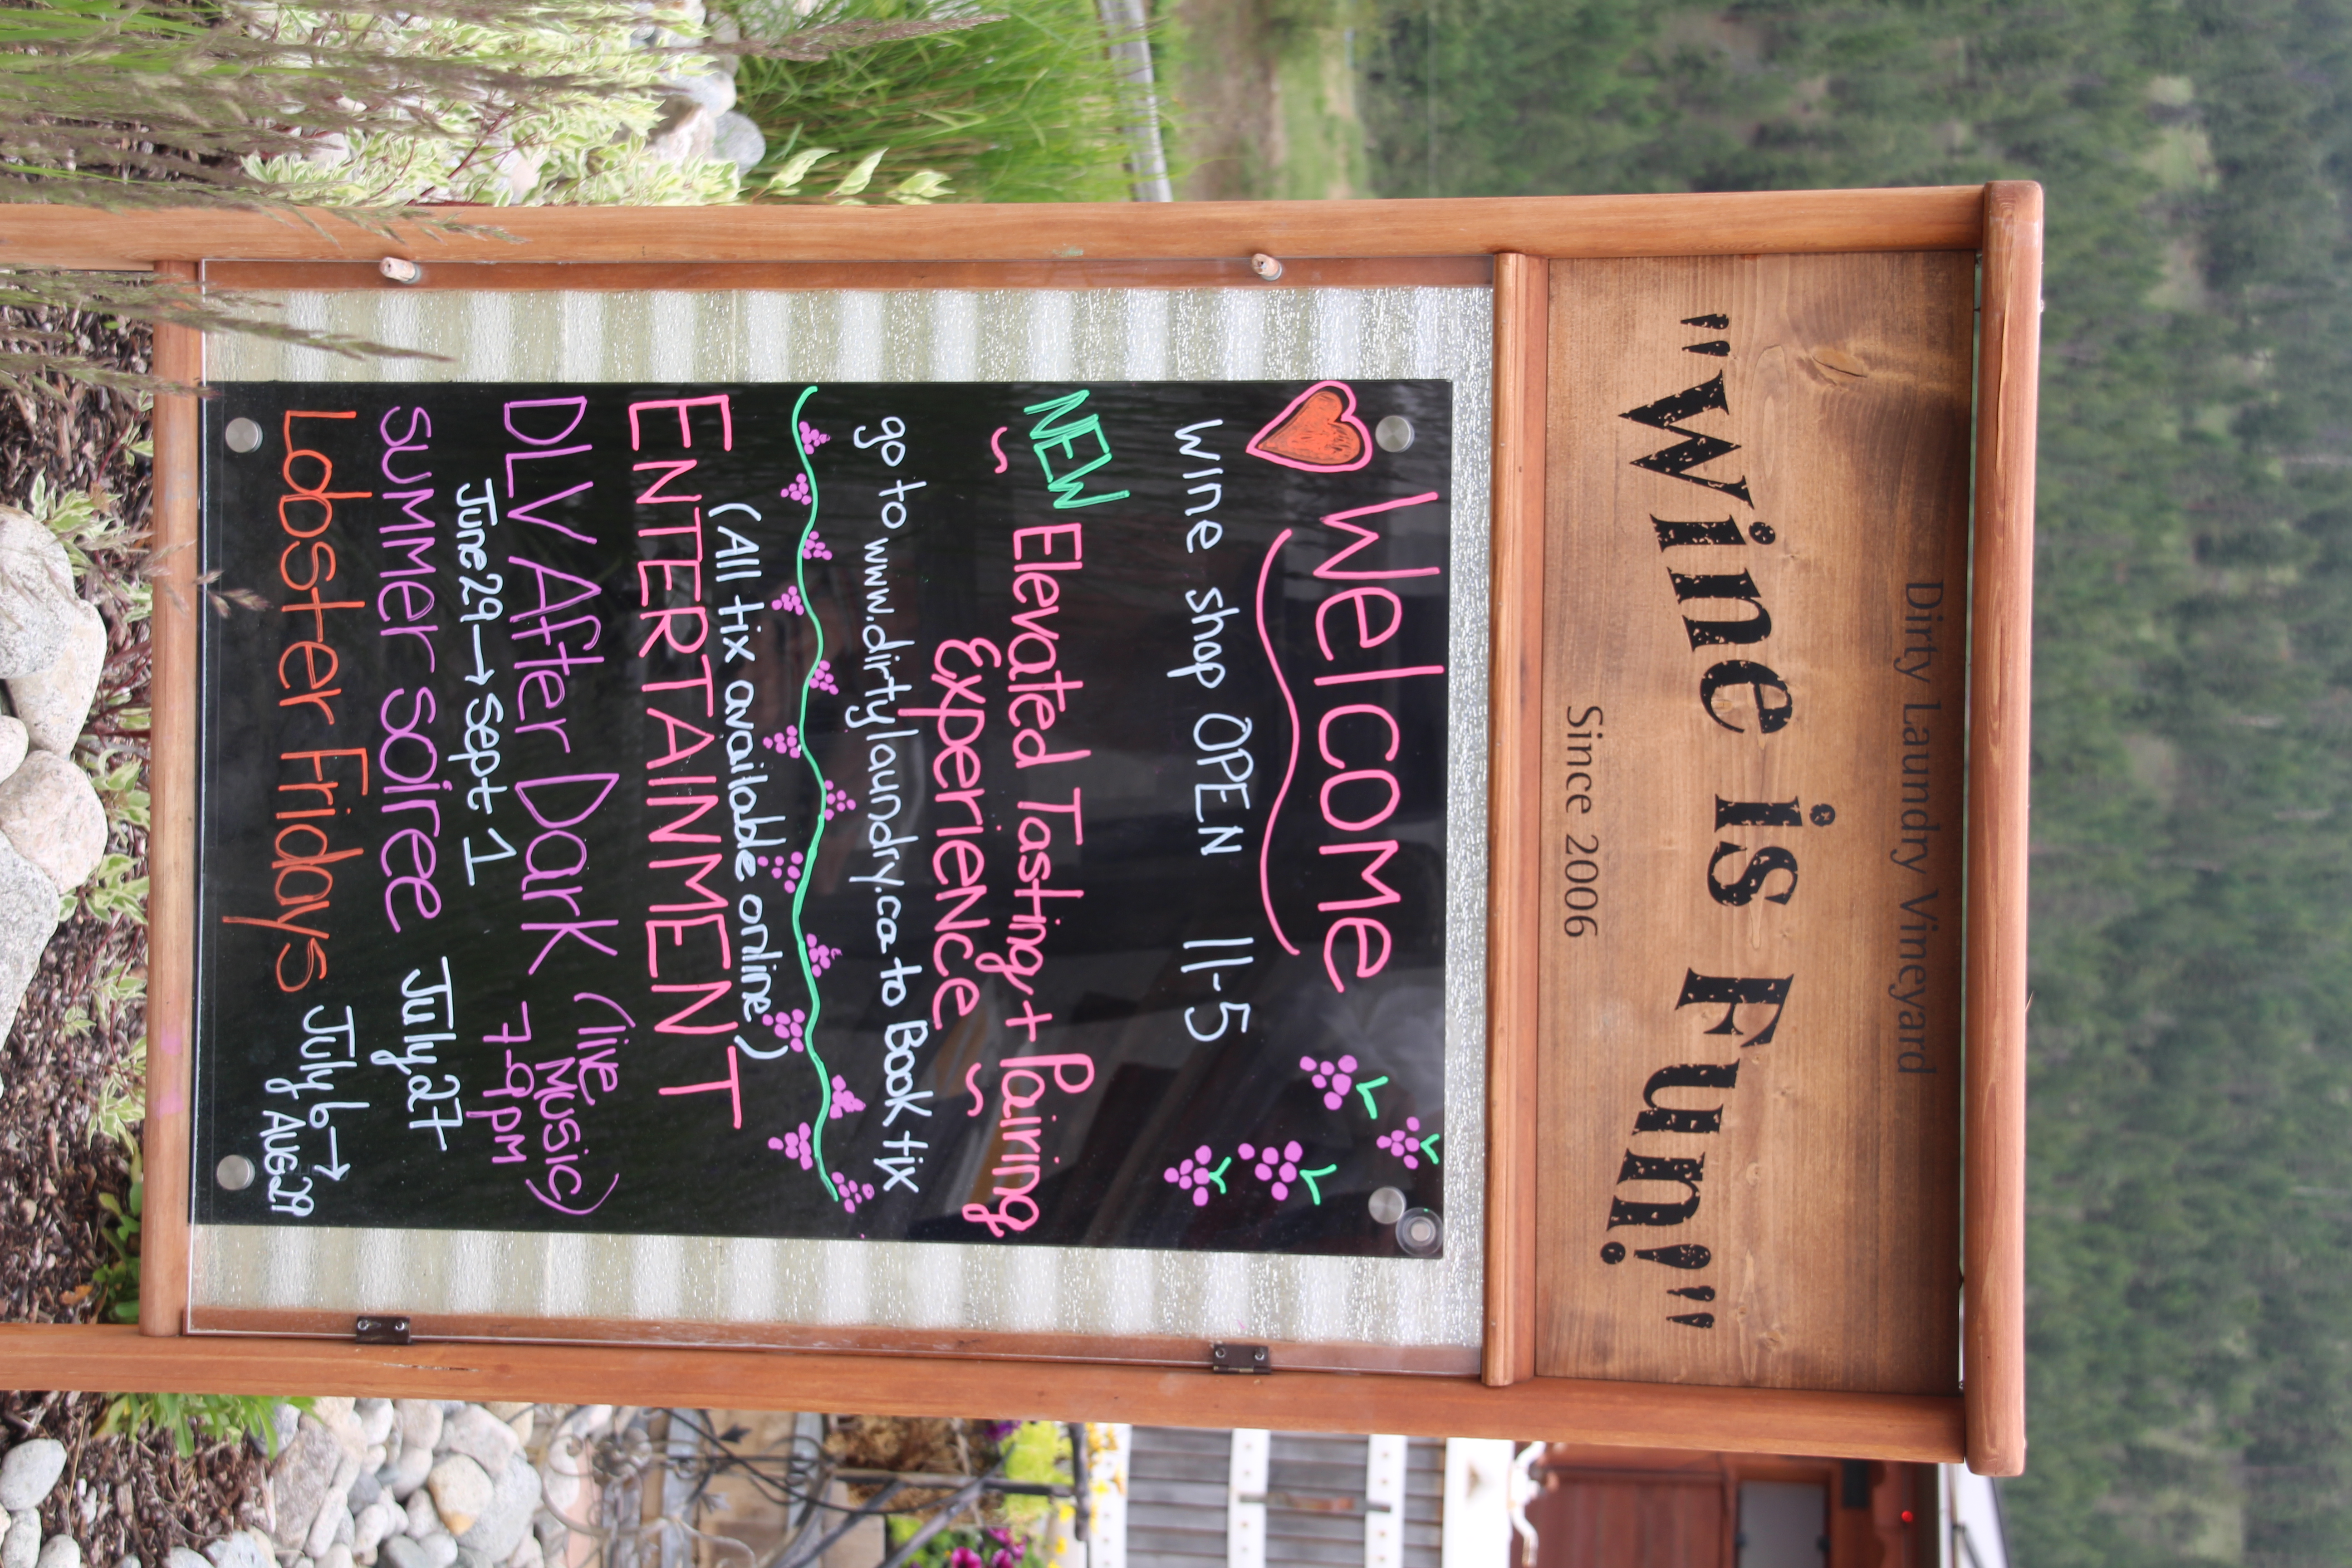 Dirty Laundry Vineyard
"Wine is Fun!"
Since 2006
Welcome
wine shop OPEN 11-5
NEW Elevated Tasting + Pairing
~ Experience ~
go to www.dirtylaundry.ca to Book tix
(All tix available online)
ENTERTAINMENT
DLV After Dark (live Music)
June 29 → Sept 1 7-9pm
summer soiree July 27
Lobster Fridays July 6 → Aug 29